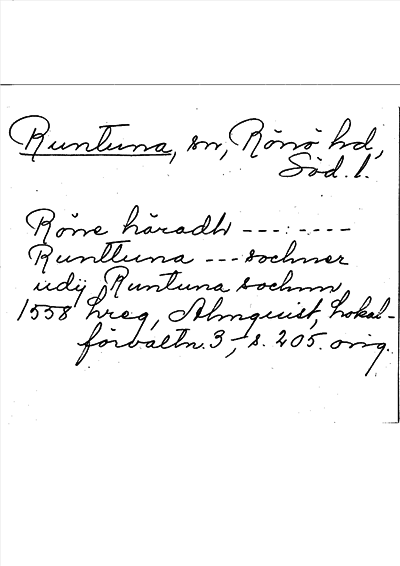 Runtuna, sn, Rönö hd,
Söd. l.
Röne häradh --------
Runttuna --- sochner
udij Runtuna sochnn
1558 hreg, Almquist, Lokal-
förvaltn. 3, s. 205. orig.